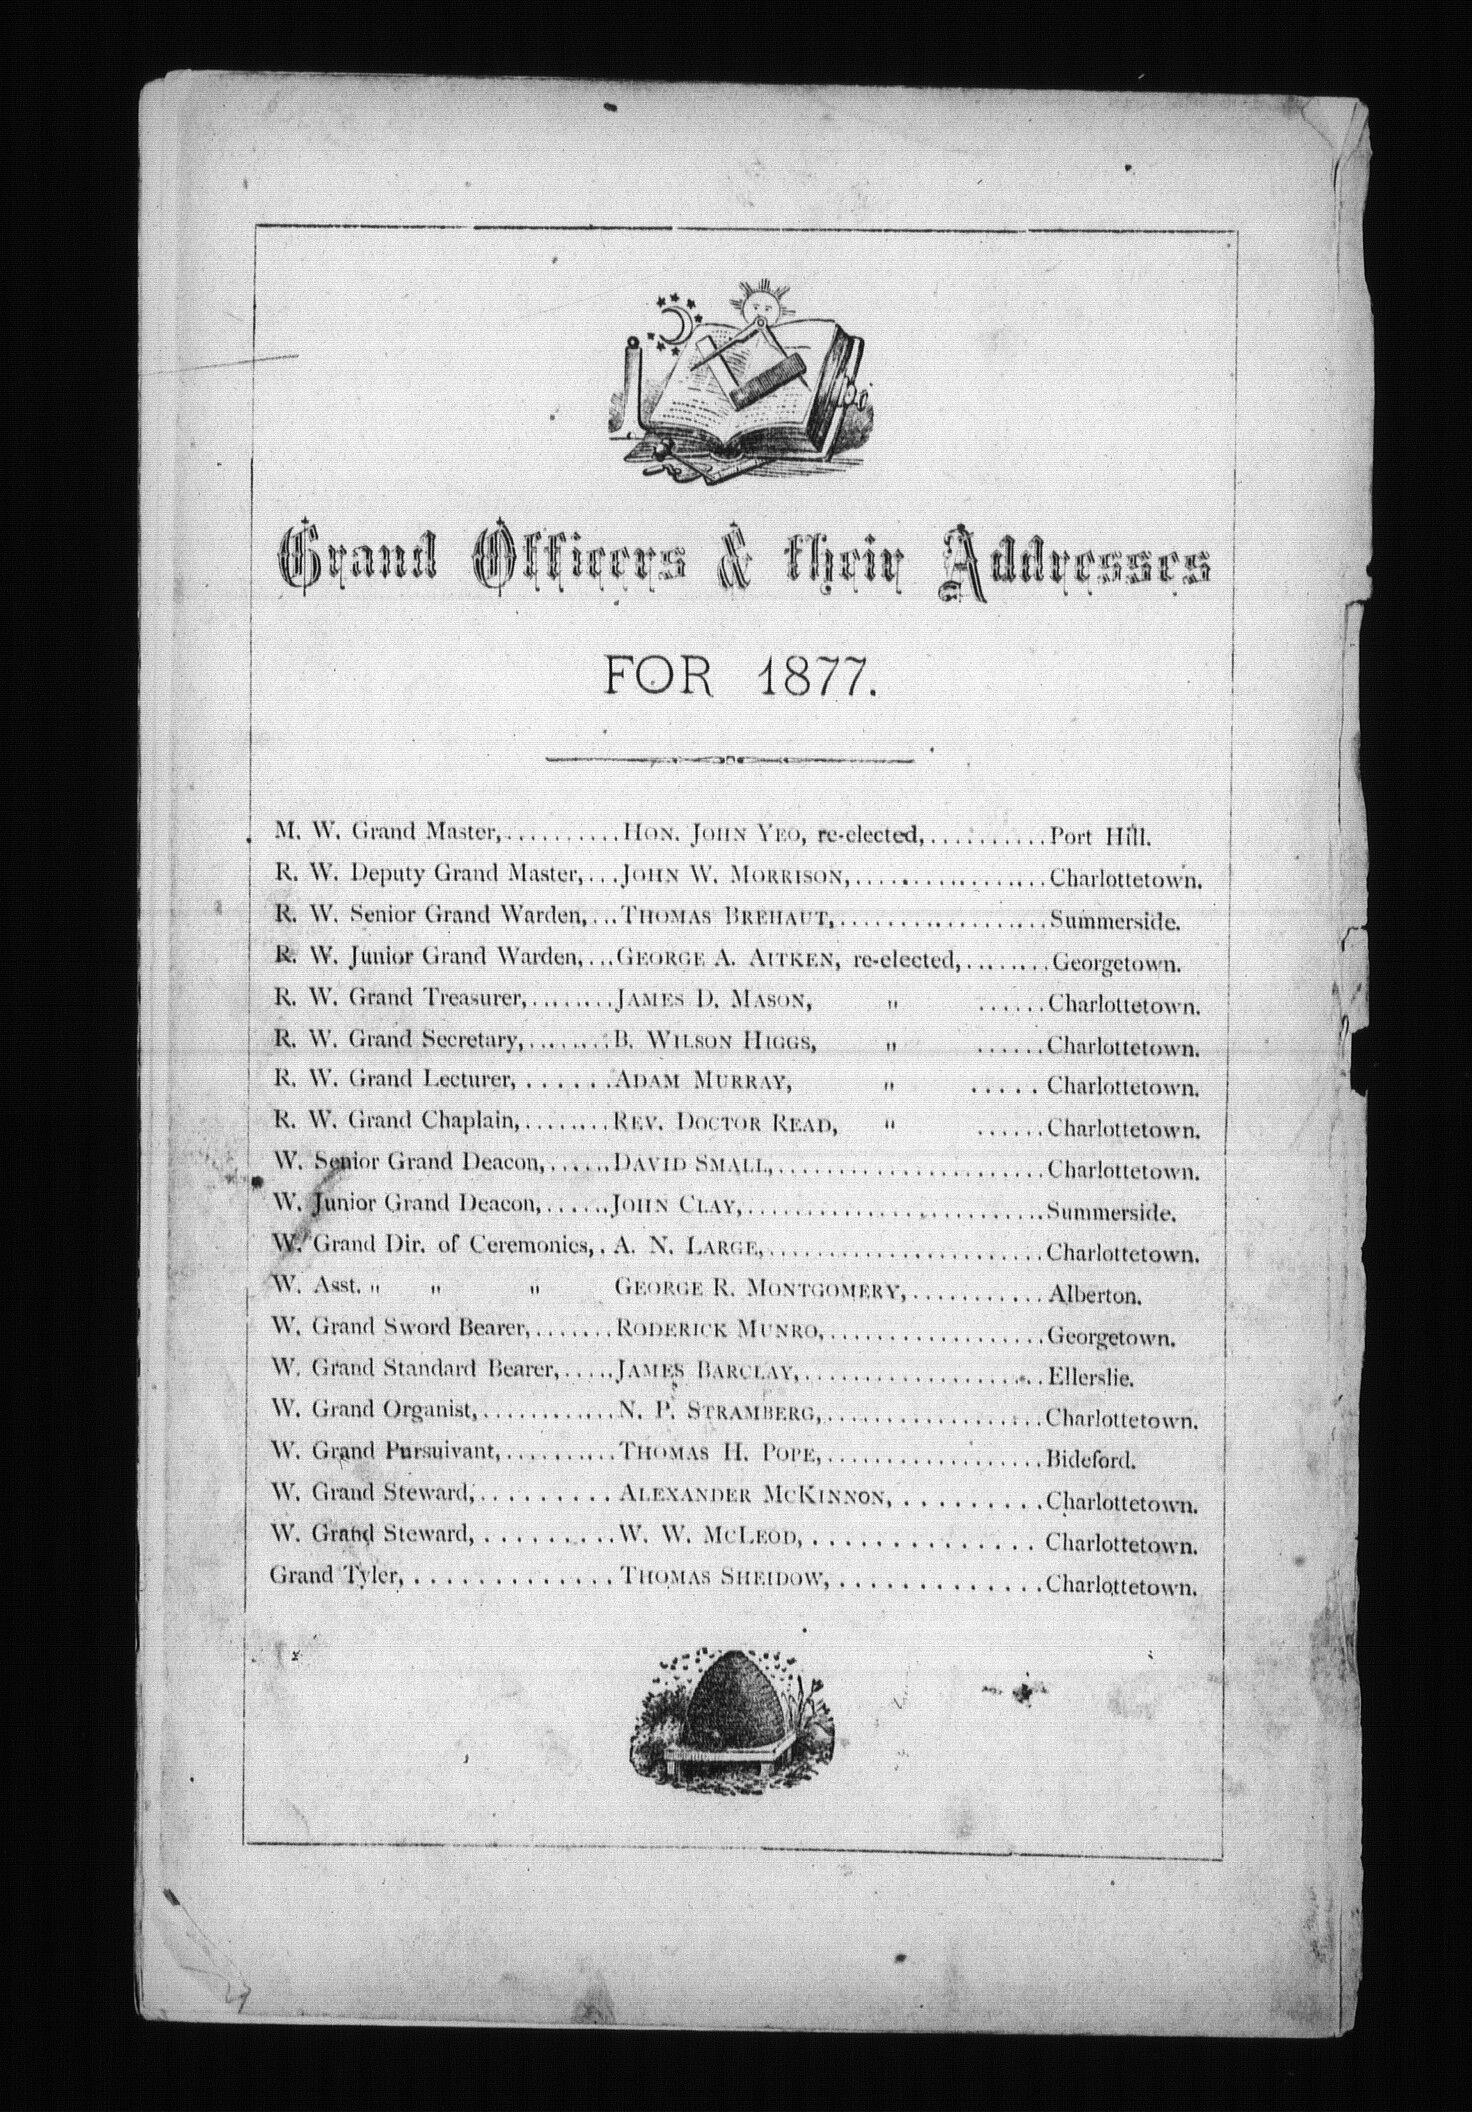 Grand Officers & their Addresses
FOR 1877.
M. W. Grand Master,..........HON. JOHN YEO, re-elected,..........Port Hill.
R. W. Deputy Grand Master,...JOHN W. MORRISON,................Charlottetown.
R. W. Senior Grand Warden,...THOMAS BREHAUT,..................Summerside.
R. W. Junior Grand Warden,...GEORGE A. AITKEN, re-elected,........Georgetown.
R. W. Grand Treasurer,........JAMES D. MASON, " ......Charlottetown.
R. W. Grand Secretary,........B. WILSON HIGGS, " ......Charlottetown.
R. W. Grand Lecturer, ......ADAM MURRAY, " ..... Charlottetown.
R. W. Grand Chaplain,........REV. DOCTOR READ, " ......Charlottetown.
W. Senior Grand Deacon,......DAVID SMALL,.......................Charlottetown.
W. Junior Grand Deacon,......JOHN CLAY,.........................Summerside.
W. Grand Dir. of Ceremonies,. A. N. LARGE,.......................Charlottetown.
W. Asst. " " " GEORGE R. MONTGOMERY,...........Alberton.
W. Grand Sword Bearer,.......RODERICK MUNRO,..................Georgetown.
W. Grand Standard Bearer,.....JAMES BARCLAY,....................Ellerslie.
W. Grand Organist,............N. P. STRAMBERG,..................Charlottetown.
W. Grand Pursuivant,..........THOMAS H. POPE,..................Bideford.
W. Grand Steward,.........ALEXANDER MCKINNON,..........Charlottetown.
W. Grand Steward,.........W. W. MCLEOD,.............. Charlottetown.
Grand Tyler,.............THOMAS SHEIDOW,.............Charlottetown.